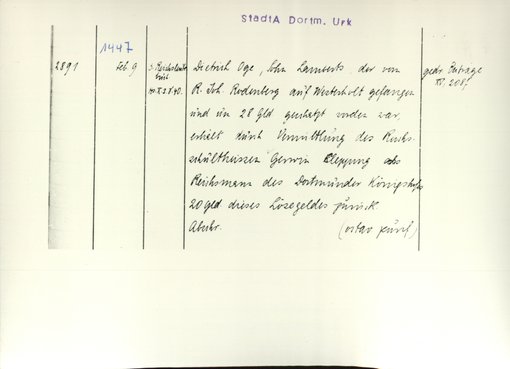 StadtA Dortm. Urk
1447
2891
Feb. 9
Dietrich Oge, Sohn Lamberts, der von
R. Joh. Rodenberg auf Westerholt gefangen
und um 28 Gld geschatzt worden war,
erhält durch Vermittlung des Reichs-
schultheissen Gerwin Clepping als
Reichsmann des Dortmunder Königshofs
20 Gld dieses Lösegeldes zurück
Abschr.
gedr. Beiträge